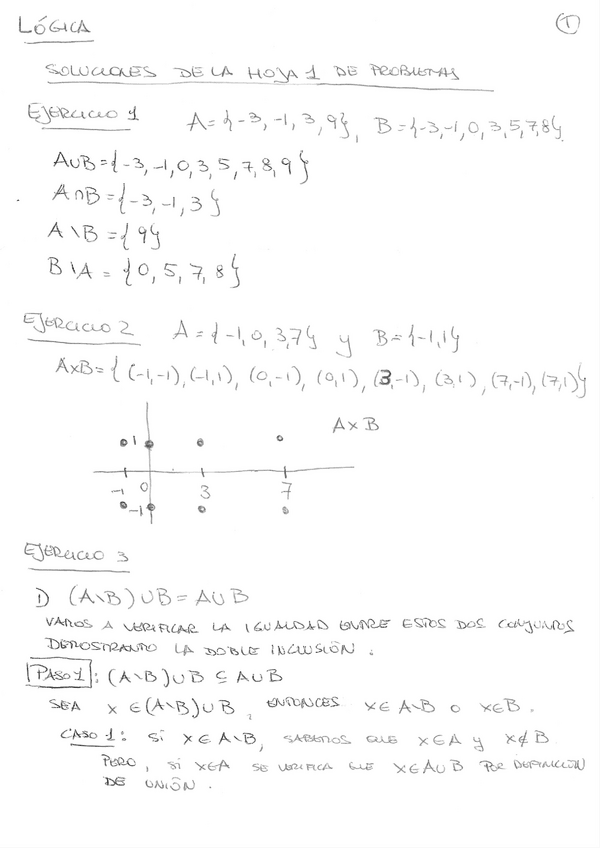 LÓGICA
①
SOLUCIONES DE LA HOJA 1 DE PROBLEMAS
EJERCICIO 1 A={-3,-1,3,9}, B={-3,-1,0,3,5,7,8}
A∪B={-3,-1,0,3,5,7,8,9}
A∩B={-3,-1,3}
A\B={9}
B\A={0,5,7,8}
EJERCICIO 2 A={-1,0,3,7} y B={-1,1}
A×B={(-1,-1),(-1,1),(0,-1),(0,1),(3,-1),(3,1),(7,-1),(7,1)}
A×B
1
-1 0 3 7
-1
EJERCICIO 3
1) (A\B)∪B=A∪B
VAMOS A VERIFICAR LA IGUALDAD ENTRE ESTOS DOS CONJUNTOS
DEMOSTRANDO LA DOBLE INCLUSIÓN.
PASO 1: (A\B)∪B⊆A∪B
SEA X∈(A\B)∪B, ENTONCES X∈A\B O X∈B.
CASO 1: SI X∈A\B, SABEMOS QUE X∈A y X∉B
PERO, SI X∈A SE VERIFICA QUE X∈A∪B POR DEFINICIÓN
DE UNIÓN.